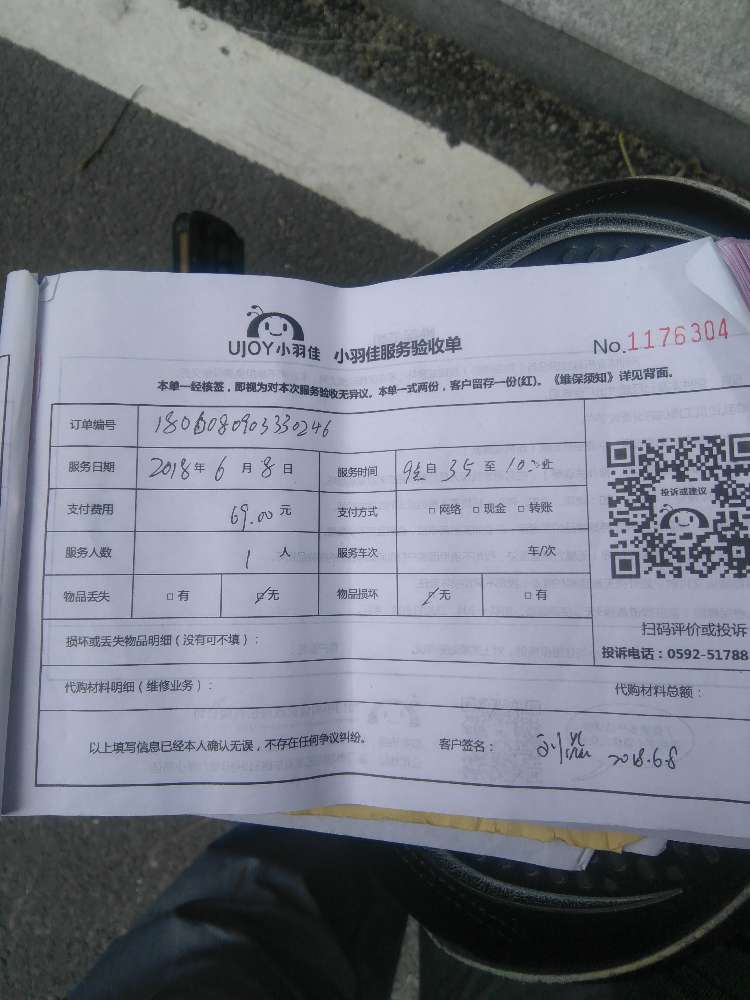 UJOY小羽佳 小羽佳服务验收单 No.1176304
本单一经核签，即视为对本次服务验收无异议。本单一式两份，客户留存一份(红)。《维保须知》详见背面。
订单编号 1806080903330246
服务日期 2018年 6 月 8 日 服务时间 自 35 至 止
支付费用 69.00 元 支付方式 □ 网络 □ 现金 □ 转账
服务人数 1 人 服务车次 车/次
物品丢失 □ 有 ☑ 无 物品损坏 ☑ 无 □ 有
投诉或建议
扫码评价或投诉
投诉电话：0592-51788
损坏或丢失物品明细（没有可不填）：
代购材料明细（维修业务）： 代购材料总额：
以上填写信息已经本人确认无误，不存在任何争议纠纷。 客户签名： 2018.6.8